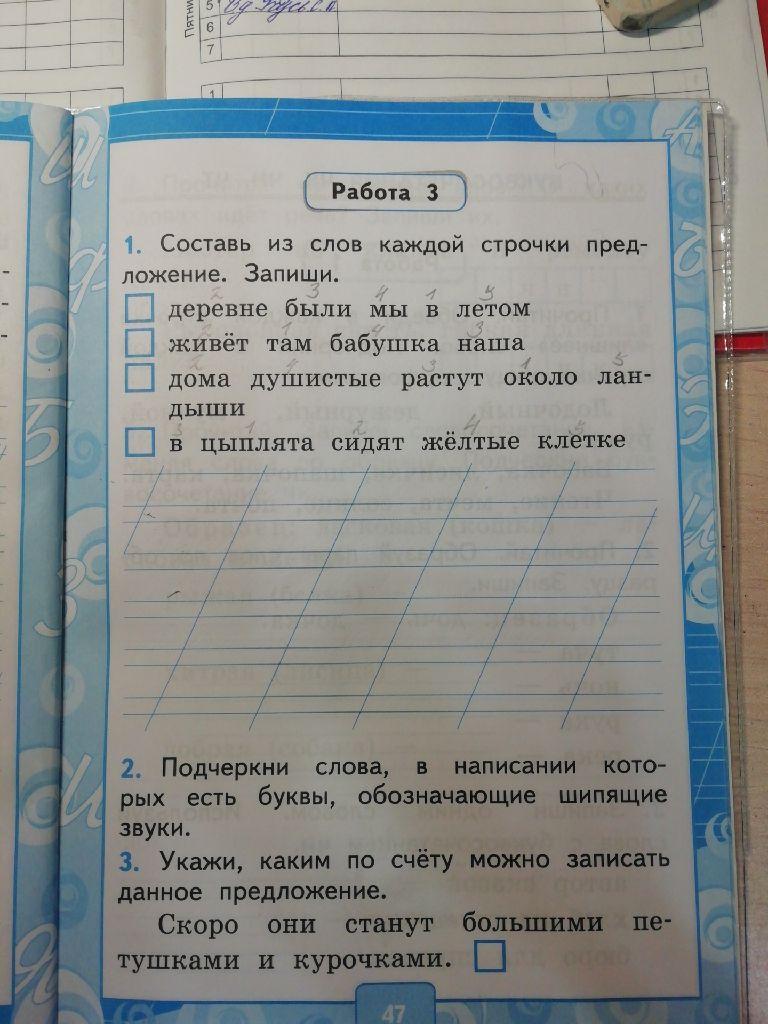 5
6
7
1
Работа 3
1. Составь из слов каждой строчки пред-
ложение. Запиши.
2 3 4 1 5
деревне были мы в летом
2 1 4 3
живёт там бабушка наша
2 4 3 1 5
дома душистые растут около лан-
дыши
3 1 2 4 5
в цыплята сидят жёлтые клетке
2. Подчеркни слова, в написании кото-
рых есть буквы, обозначающие шипящие
звуки.
3. Укажи, каким по счёту можно записать
данное предложение.
Скоро они станут большими пе-
тушками и курочками.
47